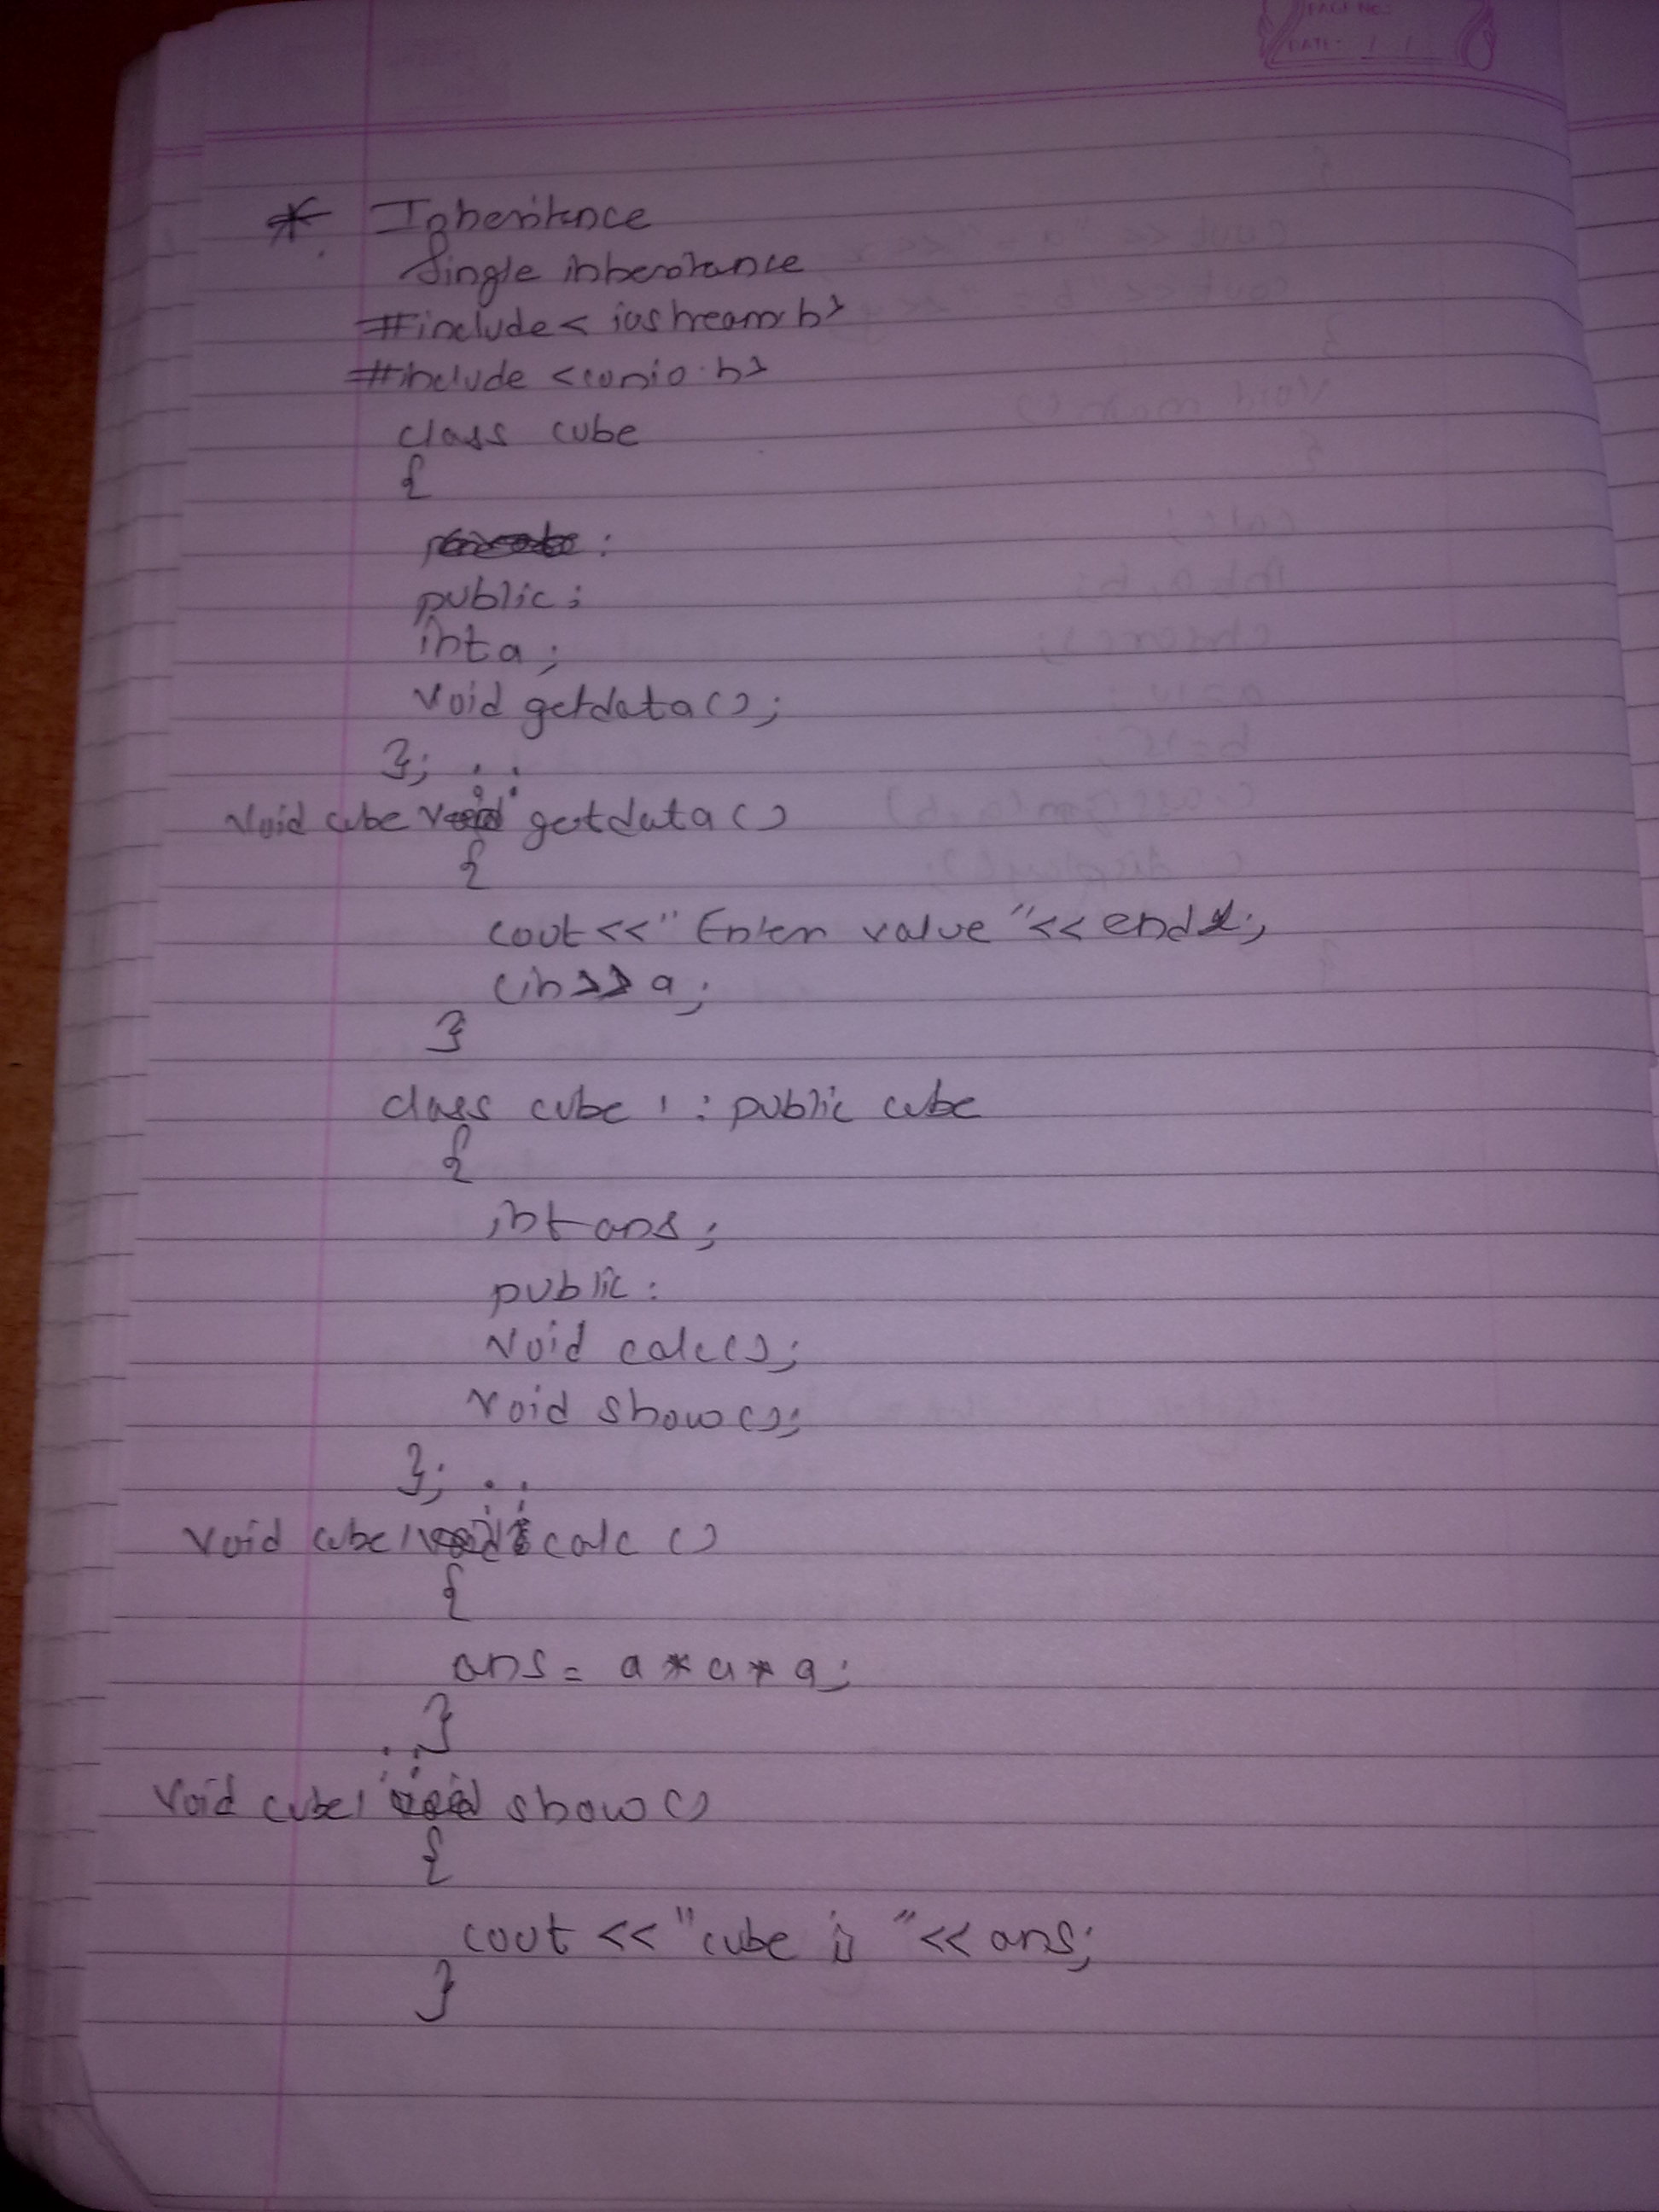 PAGE NO.
DATE: / /
* Inheritance
Single inheritance
#include< iostream.h>
#include <conio.h>
class cube
{
:
public:
int a;
void getdata();
};
void cube :: getdata()
{
cout<<"Enter value "<< endl;
cin>>a;
}
class cube1 : public cube
{
int ans;
public:
void calc();
void show();
};
void cube1 :: calc ()
{
ans = a * a * a;
}
void cube1 :: show()
{
cout << "cube is "<< ans;
}